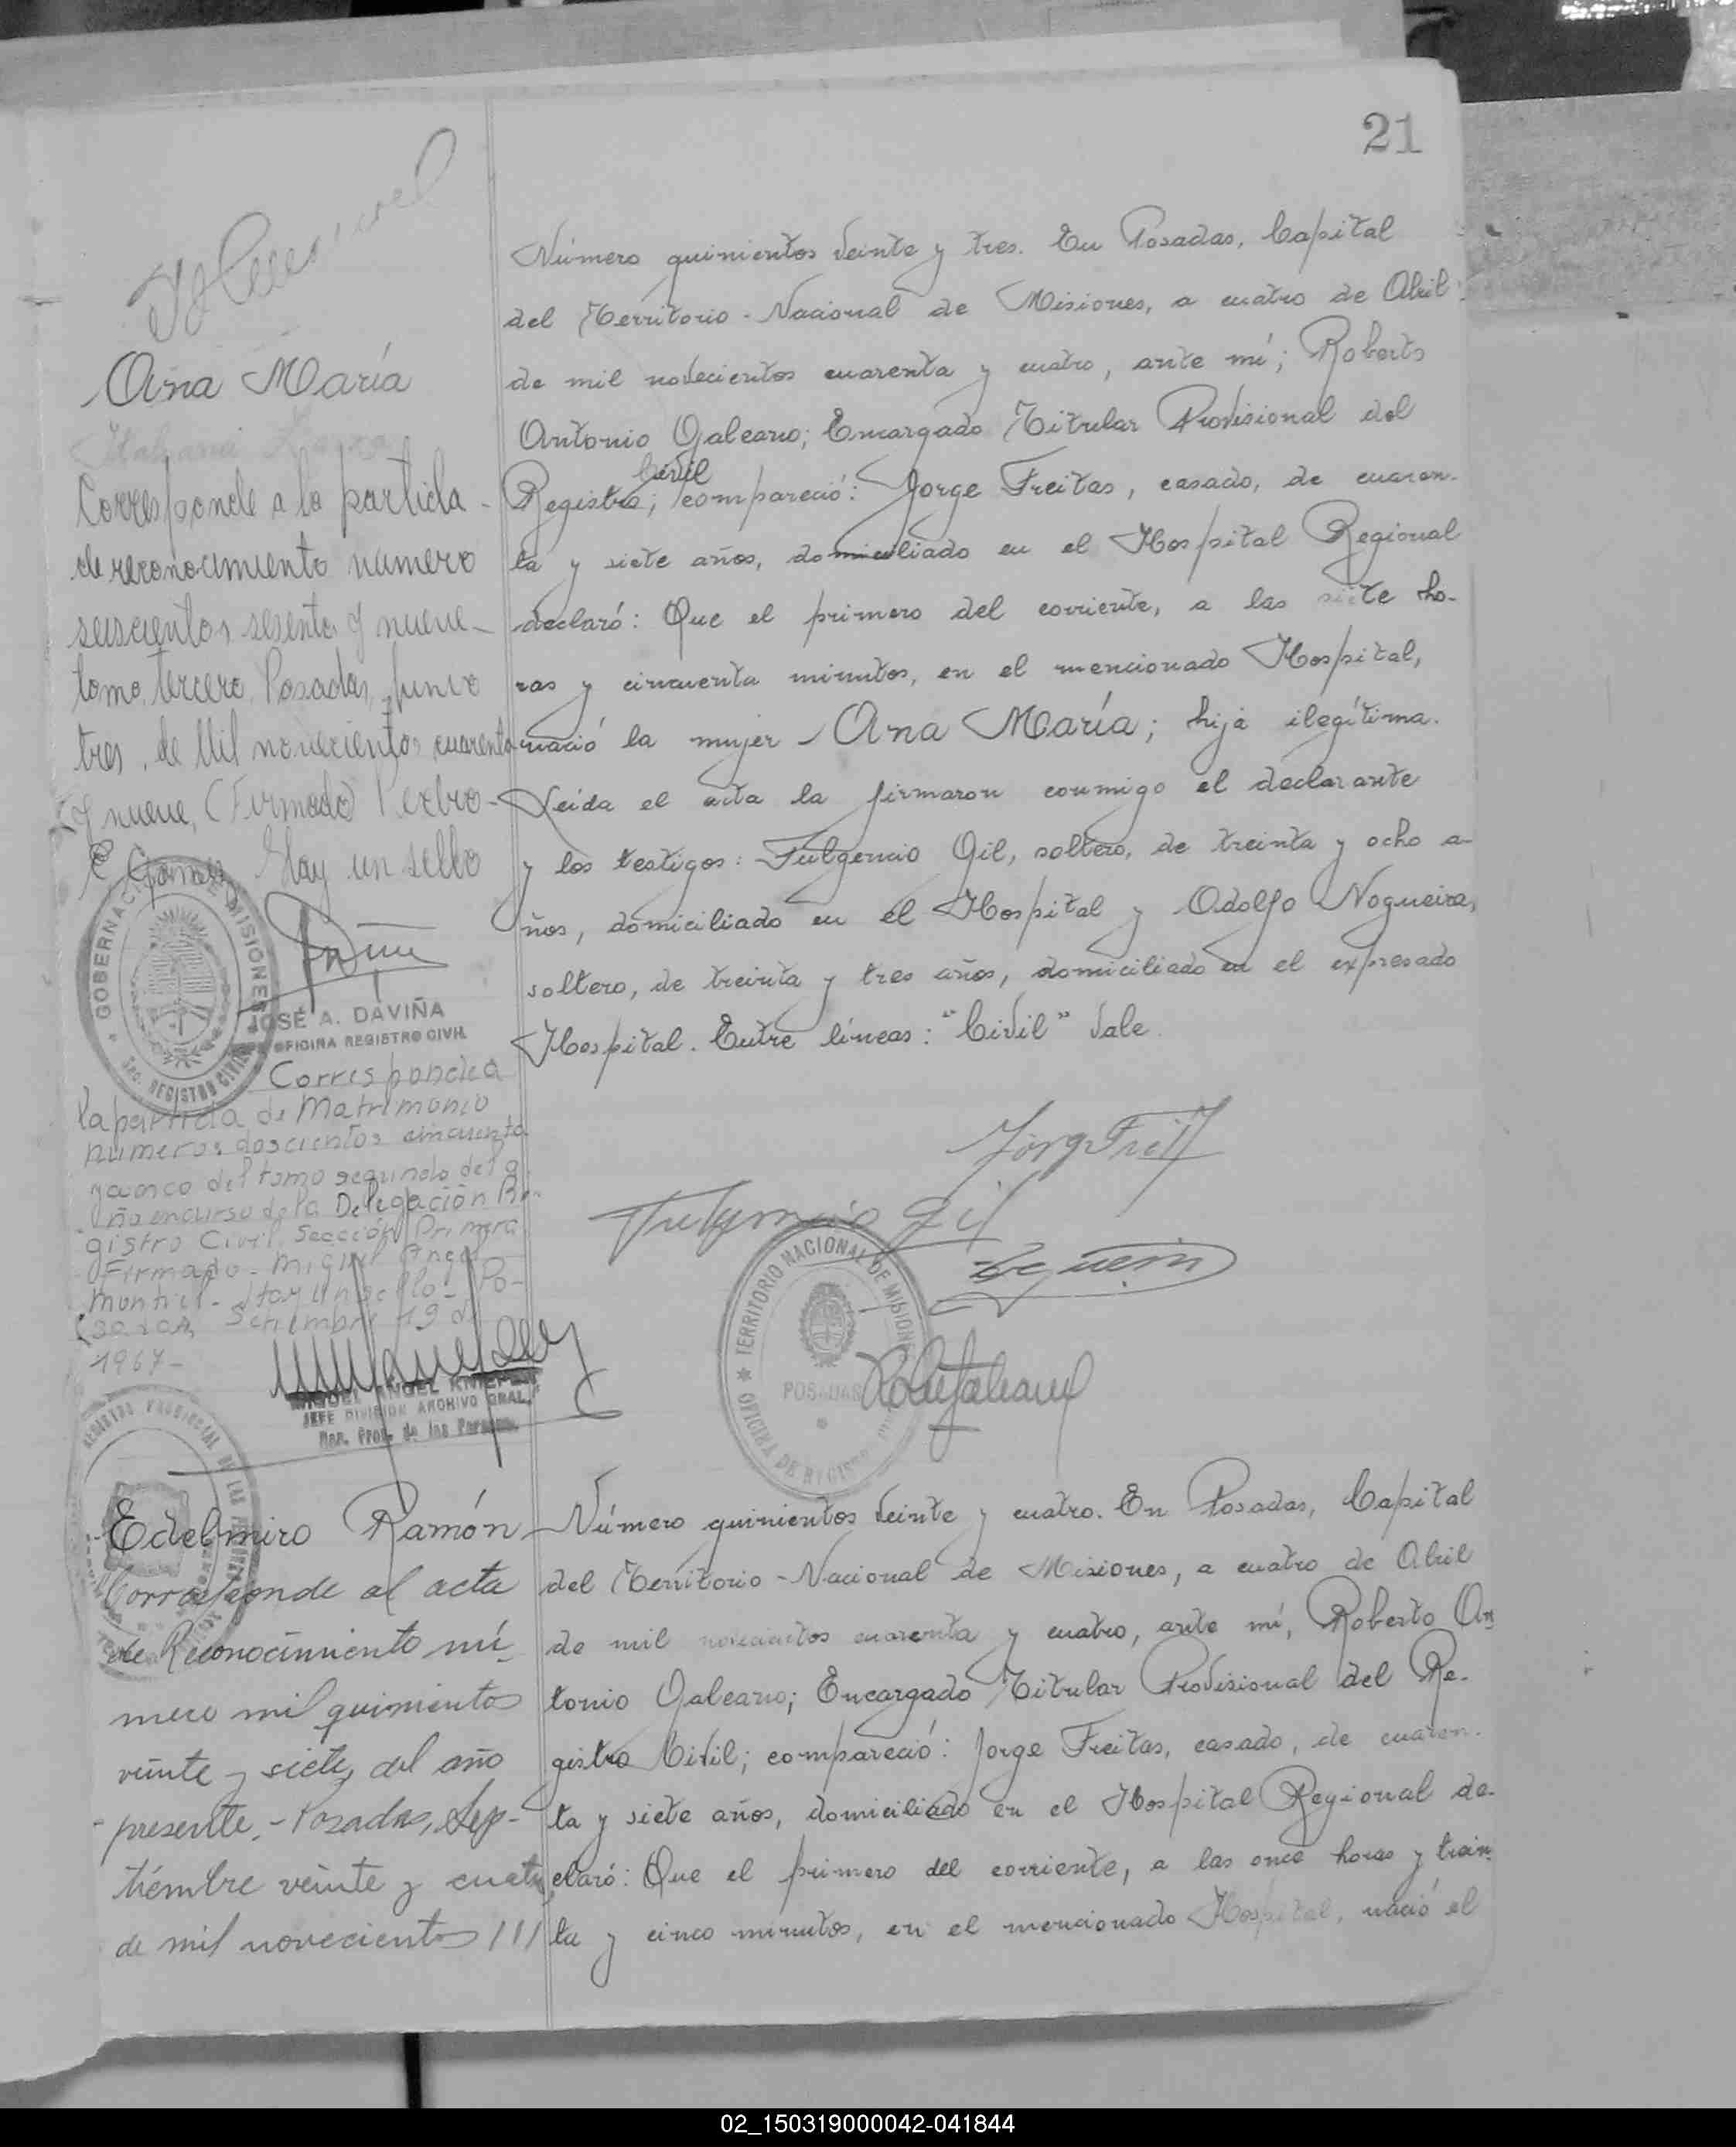 21
Número quinientos veinte y tres. En Posadas, Capital
del Territorio Nacional de Misiones, a cuatro de Abril
de mil novecientos cuarenta y cuatro, ante mí; Roberto
Antonio Galeano; Encargado Titular Provisional del
Civil
Registro; compareció: Jorge Freitas, casado, de cuaren-
ta y siete años, domiciliado en el Hospital Regional
declaró: Que el primero del corriente, a las siete ho-
ras y cincuenta minutos, en el mencionado Hospital,
nació la mujer Ana María; hija ilegítima.
Leída el acta la firmaron conmigo el declarante
y los testigos: Fulgencio Gil, soltero, de treinta y ocho a-
ños, domiciliado en el Hospital y Adolfo Nogueira,
soltero, de treinta y tres años, domiciliado en el expresado
Hospital. Entre líneas: "Civil" Vale.
Ana María
Corresponde a la partida
de reconocimiento número
seiscientos sesenta y nueve-
tomo tercero. Posadas, junio
tres de Mil novecientos cuarenta
y nueve, (Firmado) Pedro
E. Gomez Hay un sello
GOBERNACIÓN DE MISIONES
REGISTRO CIVIL
JOSÉ A. DAVIÑA
OFICINA REGISTRO CIVIL
Corresponde a
la partida de Matrimonio
número doscientos cincuenta
y cinco del tomo segundo del a-
ño en curso de la Delegación Re-
gistro Civil, Sección Primera
Firmado- Miguel Angel
Montiel- Hay un sello- Po-
sadas, Setiembre 19 de
1967-
MIGUEL ANGEL
JEFE DIVISION ARCHIVO GRAL.
Reg. Prov. de las Personas
Fulgencio Gil
TERRITORIO NACIONAL DE MISIONES
POSADAS
OFICINA DE REGISTRO
Edelmiro Ramón
Corresponde al acta
de Reconocimiento nú-
mero mil quinientos
veinte y siete, del año
presente.- Posadas, Sep-
tiembre veinte y cuatro
de mil novecientos ///
Número quinientos veinte y cuatro. En Posadas, Capital
del Territorio Nacional de Misiones, a cuatro de Abril
de mil novecientos cuarenta y cuatro, ante mí, Roberto An-
tonio Galeano; Encargado Titular Provisional del Re-
gistro Civil; compareció: Jorge Freitas, casado, de cuaren-
ta y siete años, domiciliado en el Hospital Regional de-
claró: Que el primero del corriente, a las once horas y trein-
ta y cinco minutos, en el mencionado Hospital, nació el
02_150319000042-041844